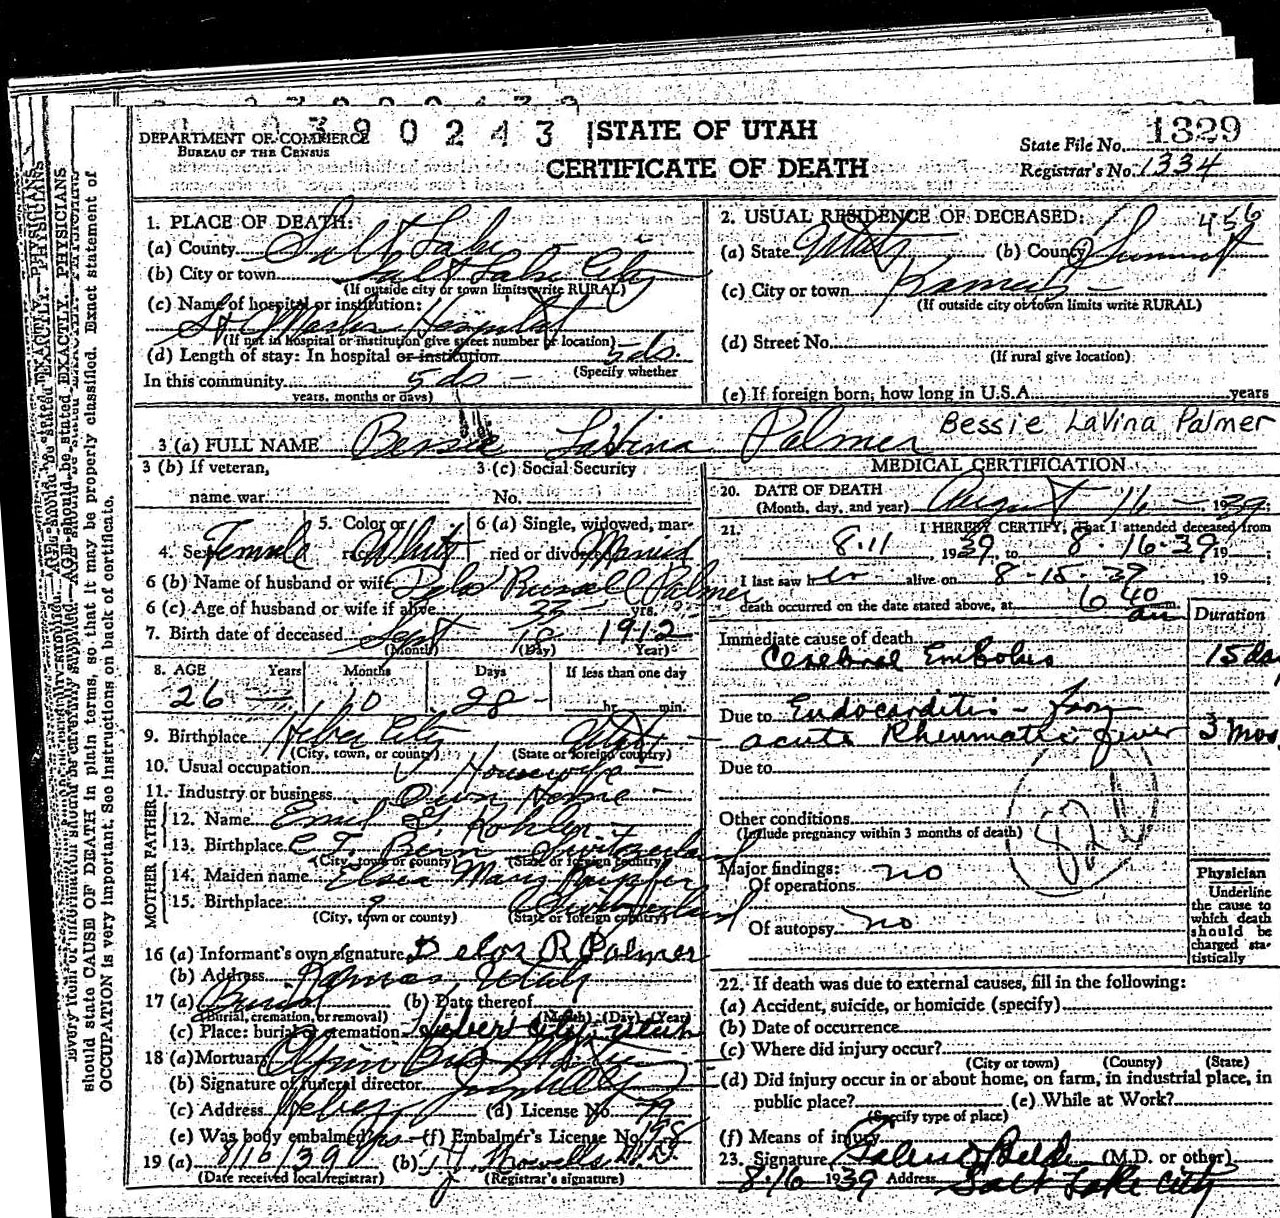 390243
STATE OF UTAH
CERTIFICATE OF DEATH
DEPARTMENT OF COMMERCE
BUREAU OF THE CENSUS
State File No. 1329
Registrar's No. 1334
1. PLACE OF DEATH:
(a) County Salt Lake
(b) City or town Salt Lake City
(If outside city or town limits write RURAL)
(c) Name of hospital or institution:
St Marks Hospital
(If not in hospital or institution give street number or location)
(d) Length of stay: In hospital or institution 5 ds.
(Specify whether
In this community 5 ds
years, months or days)
2. USUAL RESIDENCE OF DECEASED: 456
(a) State Utah (b) County Summit
(c) City or town Kamas
(If outside city or town limits write RURAL)
(d) Street No.
(If rural give location)
(e) If foreign born, how long in U.S.A. years
3 (a) FULL NAME Bessie LaVina Palmer Bessie LaVina Palmer
3 (b) If veteran,
name war
3 (c) Social Security
No.
4. Sex Female
5. Color or
race White
6 (a) Single, widowed, mar-
ried or divorced Married
6 (b) Name of husband or wife Delos Russell Palmer
6 (c) Age of husband or wife if alive 35 yrs.
7. Birth date of deceased Sept 18 1912
(Month) (Day) Year)
8. AGE Years Months Days If less than one day
26 10 28 hr. min.
9. Birthplace Heber City Utah
(City, town, or county) (State or foreign country)
10. Usual occupation Housewife
11. Industry or business Own Home
FATHER
12. Name Emil Kohler
13. Birthplace Bern Switzerland
(City, town or county) (State or foreign country)
MOTHER
14. Maiden name Elsia Mary
15. Birthplace ? Switzerland
(City, town or county) (State or foreign country)
16 (a) Informant's own signature Delos R Palmer
(b) Address Kamas Utah
17 (a) Burial (b) Date thereof
(Burial, cremation, or removal) (Month) (Day) (Year)
(c) Place: burial or cremation Heber City, Utah
18 (a) Mortuary Olpin Bros
(b) Signature of funeral director
(c) Address Heber (d) License No. 79
(e) Was body embalmed? yes (f) Embalmer's License No. 158
19 (a) 8/16/39 (b) Howells M.D.
(Date received local registrar) (Registrar's signature)
MEDICAL CERTIFICATION
20. DATE OF DEATH
(Month, day, and year) August 16 1939
21. I HEREBY CERTIFY, That I attended deceased from
8.11, 1939, to 8.16.39 19
I last saw her alive on 8-15-39, 19
death occurred on the date stated above, at 6 40 am
Duration
Immediate cause of death
Cerebral Embolus 15 da
Due to Endocarditis - from
acute Rheumatic fever 3 mos
Due to
Other conditions
(Include pregnancy within 3 months of death)
Major findings:
Of operations no
Of autopsy no
Physician
Underline
the cause to
which death
should be
charged sta-
tistically
22. If death was due to external causes, fill in the following:
(a) Accident, suicide, or homicide (specify)
(b) Date of occurrence
(c) Where did injury occur?
(City or town) (County) (State)
(d) Did injury occur in or about home, on farm, in industrial place, in
public place? (e) While at Work?
(Specify type of place)
(f) Means of injury
23. Signature (M.D. or other)
8-16 1939 Address Salt Lake City
should state CAUSE OF DEATH in plain terms, so that it may be properly classified. Exact statement of
OCCUPATION is very important. See instructions on back of certificate.